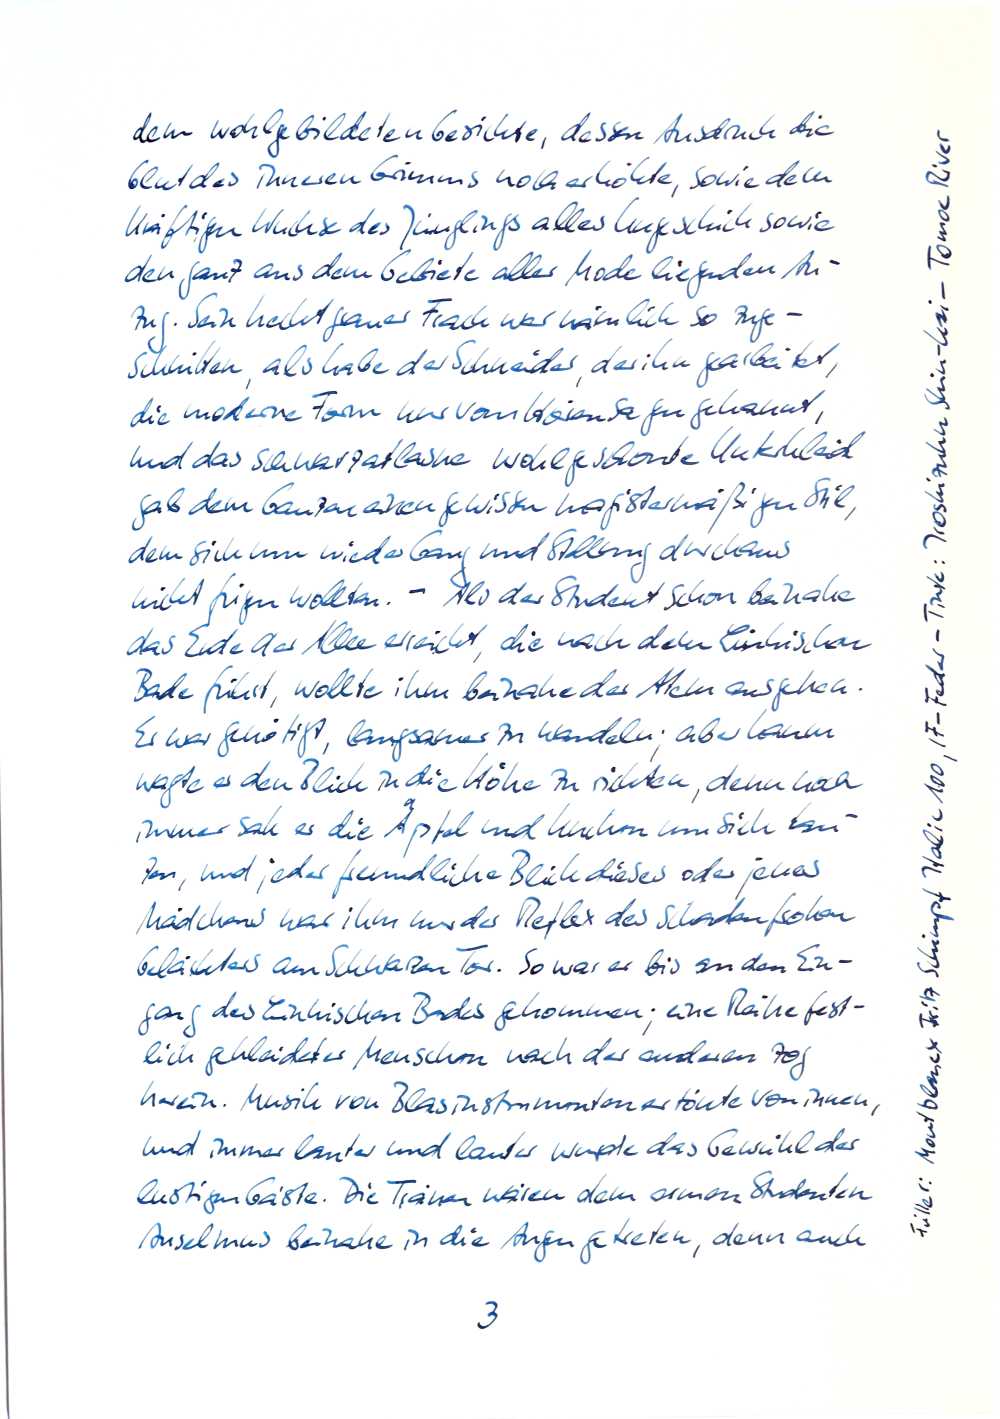 dem wohlgebildeten Gesichte, dessen Ausdruck die
Glut des inneren Grimms noch erhöhte, sowie dem
kräftigen Wuchse des Jünglings alles Ungeschick sowie
den ganz aus dem Gebiete aller Mode liegenden An-
zug. Sein hechtgrauer Frack war nämlich so zuge-
schnitten, als habe der Schneider, der ihn gearbeitet,
die moderne Form nur von Hörensagen gekannt,
und das schwarzatlasne wohlgeschonte Unterkleid
gab dem Ganzen einen gewissen magistermäßigen Stil,
dem sich nun wieder Gang und Stellung durchaus
nicht fügen wollten. – Als der Student schon beinahe
das Ende der Allee erreicht, die nach dem Linkischen
Bade führt, wollte ihm beinahe der Atem ausgehen.
Er war genötigt, langsamer zu wandeln; aber kaum
wagte er den Blick in die Höhe zu richten, denn noch
immer sah er die Äpfel und Kuchen um sich tan-
zen, und jeder freundliche Blick dieses oder jenes
Mädchens war ihm nur der Reflex des schadenfrohen
Gelächters am Schwarzen Tor. So war er bis an den Ein-
gang des Linkischen Bades gekommen; eine Reihe fest-
lich gekleideter Menschen nach der anderen zog
herein. Musik von Blasinstrumenten ertönte von innen,
und immer lauter und lauter wurde das Gewühl der
lustigen Gäste. Die Tränen wären dem armen Studenten
Anselmus beinahe in die Augen getreten, denn auch
3
Füller: Montblanc Fritz Schimpf Italic 100, 17-Feder – Tinte: Iroshizuku Shin-kai – Tomoe River